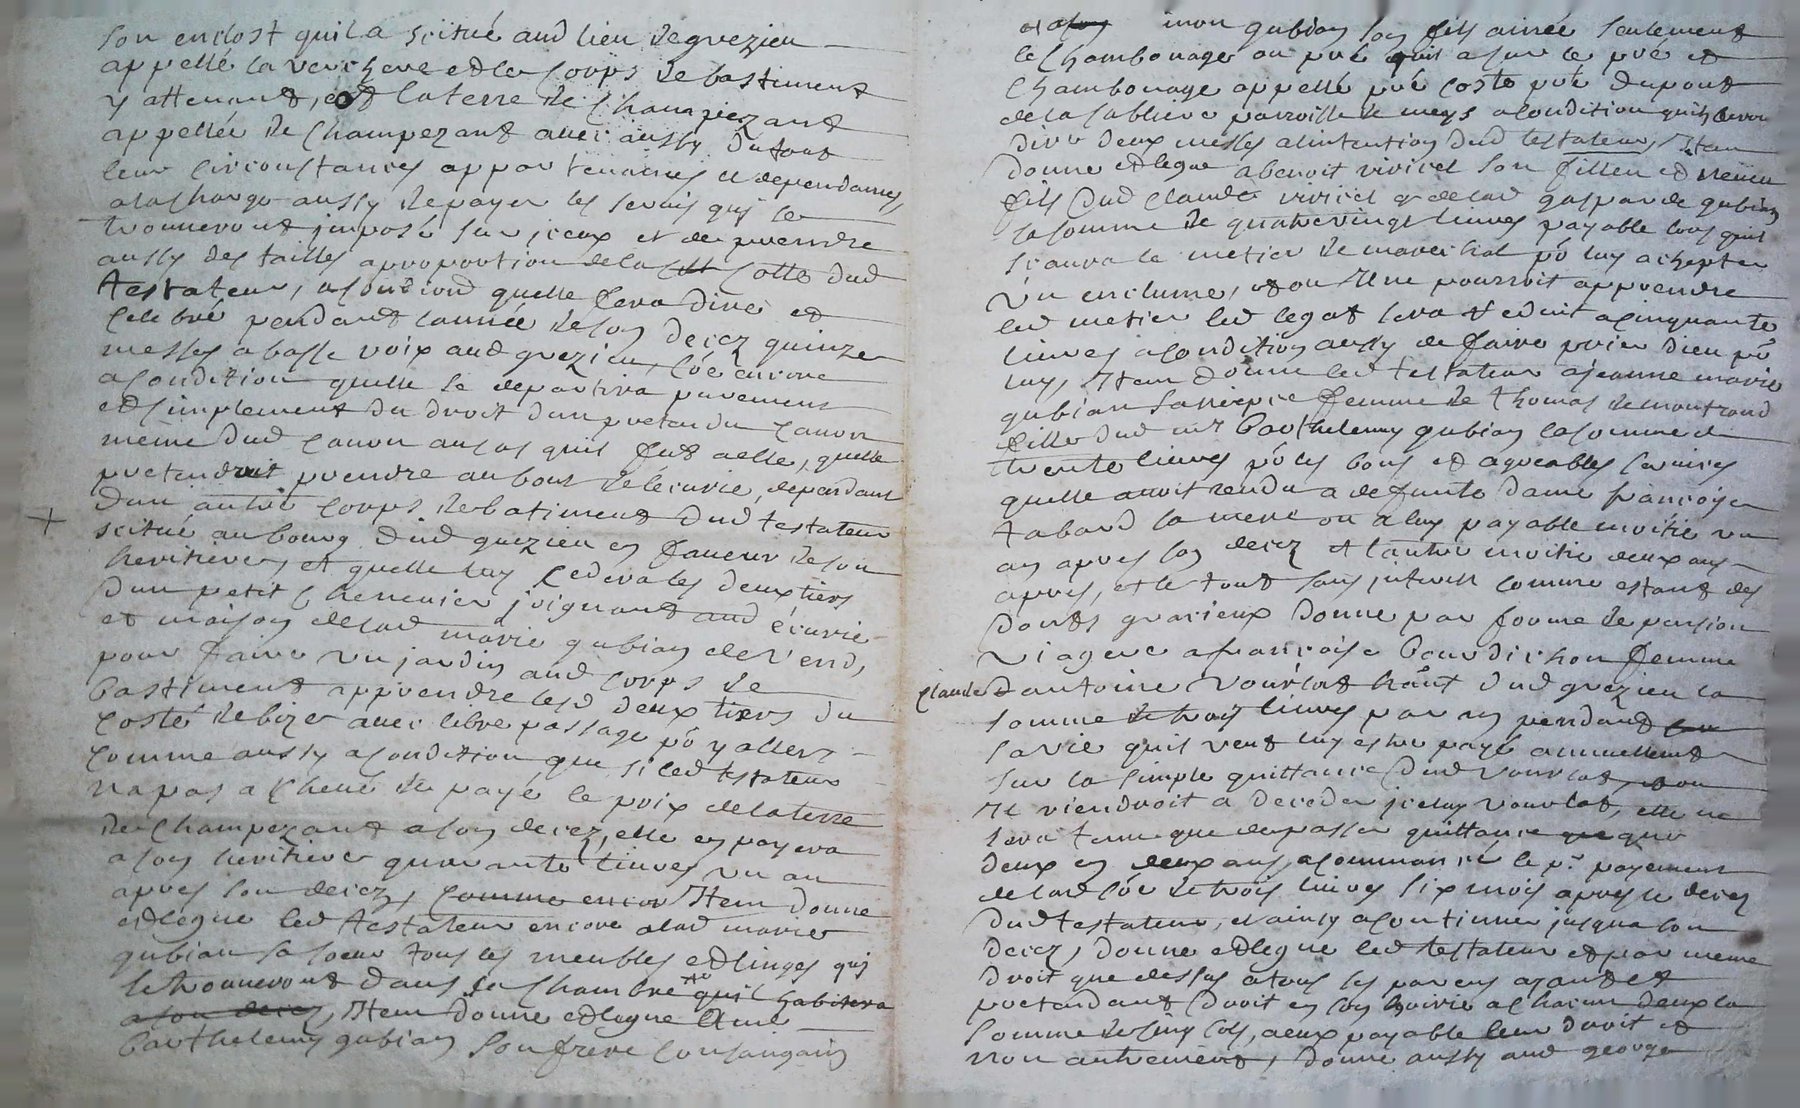 son enclost quil a scitué aud lieu de grezieu
appellé la verchere et le corps de bastiment
y attenant, et la terre de Champezant
appellée de Champezant avec aussy du tout
leur circonstances appartenances et dependances
a la charge aussy de payer les servis qui se
trouveront imposé sur iceux et de prendre
aussy des tailles a proportion de la cotte dud
testateur, a condiond quelle fera dire et
celebré pendant lannée de son decez quinze
messes a basse voix aud grezieu, encore
a condition quelle se departira purement
et simplement du droit dun pretendu
même dud au cas quil fut a elle, quelle
pretendroit prendre au bout de lécurie, dependant
dun autre corps de batiment dud testateur
scitué au bourg dud grezieu en faveur de son
heritiere, et quelle luy cedera les deux tiers
dun petit chenevier joignant aud écurie
et maison de lad marie gubian de vend,
pour faire un jardin aud corps de
bastiment apprendre lesd deux tiers du
costé de bize avec libre passage po y aller
comme aussy a condition que si led testateur
na pas achevé de payé le prix de la terre
de Champezant a son decez, elle en payera
a son heritiere quarante livres un an
apres son decez, comme encor Item donne
et legue led testateur encore a lad marie
gubian sa soeur tous les meubles et linges qui
se trouveront dans sa chambre quil habitera
a son decez, Item donne et legue
barthelemy gubian son frere consanguin
gubian son fils ainée seulement
le Chambonage ou pré quil a sur le pré et
Chambonage appellé pré coste pré dupont
de la sabliere parroisse de meys a condition quil fera
dire deux messes a lintention dud testateur, Item
donne et legue a benoit viricel son filleu et neveu
fils dud claude viricel et de lad gasparde gubian
la somme de quatrevingt livres payable lors quil
scaura le metier de marechal po luy achepter
un enclume, et ou il ne pourroit apprendre
led metier led legat sera reduit a cinquante
livres a condition aussy de faire prier dieu po
luy, Item donne led testateur a jeanne marie
gubian sa niepce femme de thomas de montrond
fille dud mr barthelemy gubian la somme de
trente livres po les bons et agreables services
quelle avoit rendu a defunte dame françoise
tabard sa mere ou a luy payable moitié un
an apres son decez et lautre moitié deux ans
apres, et le tout sans interest comme estant des
donts gracieux donne par forme de pension
viagere a françoise bourdichon femme
claude d antoine vourlat hant dud grezieu la
somme de trois livres par an pendant
sa vie quil veut luy estre payé annuellement
sur la simple quittance dud vourlat, ou
il viendroit a deceder iceluy vourlat, elle ne
sera tenue que de passer quittance que
deux en deux ans, a commancé le pr payement
de lad soe de trois livres six mois apres le decez
dud testateur, et ainsy a continuer jusqua son
decez, donne et legue led testateur et par meme
droit que dessus a tous les parens ayant et
pretendant droit en son hoirie a chacun deux la
somme de cinq sols, a eux payable leur droit et
non autrement, donne aussy aud george